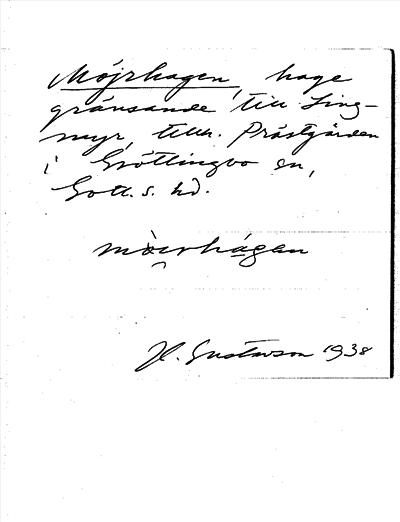 Möjrhagen, hage
gränsande till Ling-
myr, tillh. Prästgården
i Gröttlingbo sn,
Gotl. s. hd.
mòi̯rhágan
H. Gustavson 1938